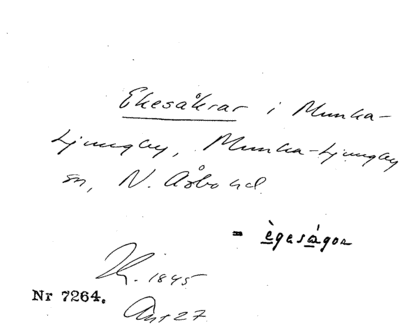 Ekesåkrar i Munka-
Ljungby, Munka-Ljungby
sn, N. Åsbo hd.
= ègəságɔr
1845
Nr 7264.
27